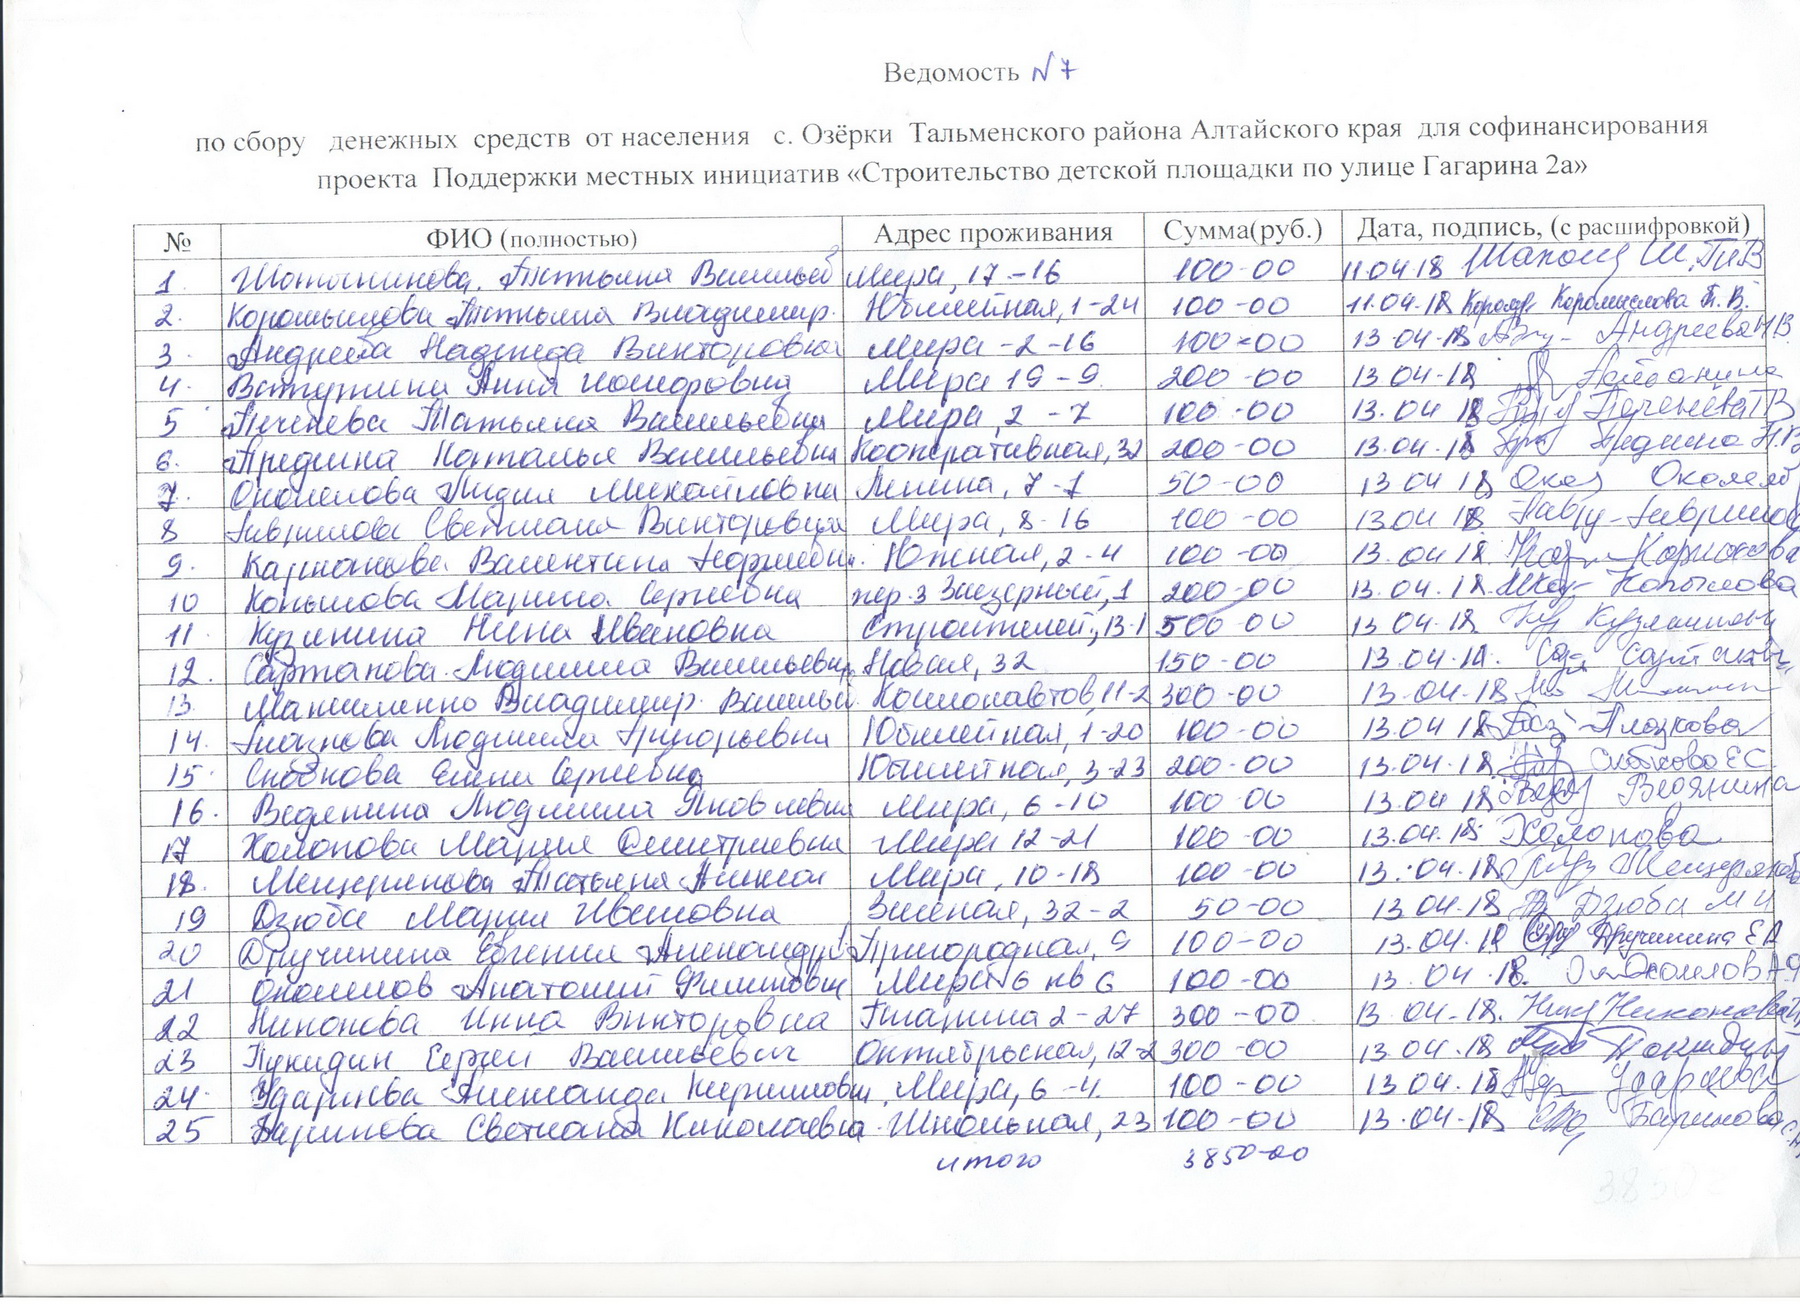 Ведомость №7
по сбору денежных средств от населения с. Озёрки Тальменского района Алтайского края для софинансирования
проекта Поддержки местных инициатив «Строительство детской площадки по улице Гагарина 2а»
№ ФИО (полностью) Адрес проживания Сумма(руб.) Дата, подпись, (с расшифровкой)
1. Татьяна Васильев Мира, 17-16 100-00 11.04 18
2. Коромыслова Татьяна Владимир. Юбилейная, 1-24 100-00 11.04.18 Коромыслова Т. В.
3. Андреева Надежда Викторовна Мира-2-16 100-00 13 04.18 Андреева Н.В.
4. Анна Мира 19-9. 200-00 13 04.18
5 Печенева Татьяна Васильевна Мира, 2-7 100-00 13.04 18 Печенева ТВ
6. Наталья Васильевна Кооперативная, 32 200-00 13.04.18
7. Околелова Лидия Михайловна Ленина, 7-7 50-00 13 04 18
8 Гаврилова Светлана Викторовна Мира, 8-16 100-00 13 04 18 Гаврилова
9. Валентина Южная, 2-4 100-00 13.04 18.
10 Копылова Марина Сергеевна пер. 3 Заозерный, 1 200-00 13.04.18. Копылова
11. Нина Ивановна Строителей, 13-1 500-00 13 04.18
12. Сартакова Людмила Васильевн Новая, 32 150-00 13.04.18.
13. Владимир Васильев. Космонавтов 11-2 300-00 13.04.18
14. Глазкова Людмила Григорьевна Юбилейная, 1-20 100-00 13.04 18 Глазкова
15. Елена Сергеевна Юбилейная, 3-23 200-00 13.04.18. ЕС
16. Ведянина Людмила Яковлевна Мира, 6-10 100-00 13.04 18 Ведянина
17 Холопова Мария Дмитриевна Мира 12-21 100-00 13.04.18 Холопова
18. Мещерякова Татьяна Мира, 10-18 100-00 13.04.18 Мещерякова
19 Дзюба Мария Ивановна Зелёная, 32-2 50-00 13.04.18 Дзюба М И
20 Дручинина Евгения Александр Пригородная, 9 100-00 13.04.18 Дручинина Е А
21 Околелов Анатолий Мира 6 кв 6 100-00 13.04.18. Околелов А.Ф
22 Никонова Инна Викторовна Гагарина 2-27 300-00. 13.04.18. Никонова
23 Сергей Васильевич Октябрьская, 12-2 300-00 13.04.18
24. Ударцева Александра Кирилловн. Мира, 6-4. 100-00 13 04.18 Ударцева
25 Баринова Светлана Николаевна Школьная, 23 100-00 13.04.18 Баринова С.Н.
итого 3850-00